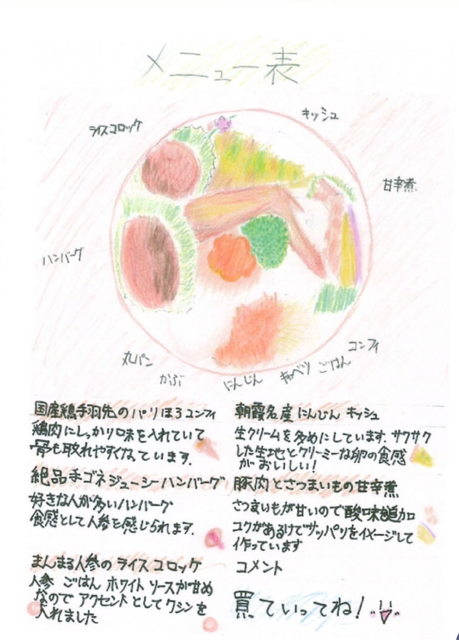 メニュー表
ライスコロッケ
キッシュ
甘辛煮
ハンバーグ
丸パン
かぶ
にんじん
キャベツ
ごはん
コンフィ
国産鶏手羽先のパリほろコンフィ
鶏肉にしっかり味を入れていて
骨も取れやすくなっています。
絶品手ゴネジューシーハンバーグ
好きな人が多いハンバーグ
食感として人参を感じられます。
まんまる人参のライスコロッケ
人参 ごはん ホワイトソースが甘め
なのでアクセントとしてクミンを
入れました
朝霞名産にんじんキッシュ
生クリームを多めにしています。サクサク
した生地とクリーミーな卵の食感
がおいしい!
豚肉とさつまいもの甘辛煮
さつまいもが甘いので酸味追加
コクがあるけでサッパリをイメージして
作っています
コメント
買ていってね!